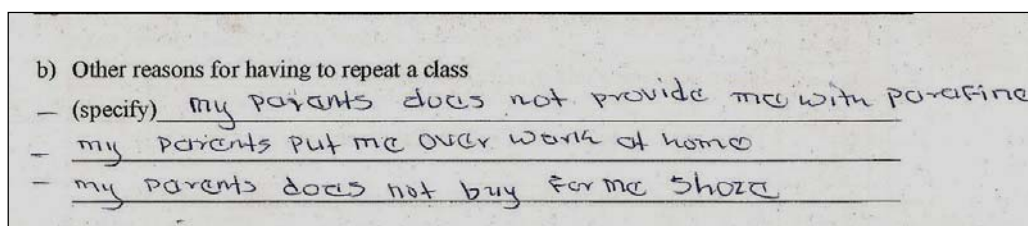 b) Other reasons for having to repeat a class
– (specify) my parants does not provide me with parafine
– my parents put me over work at home
– my parents does not buy for me shoze